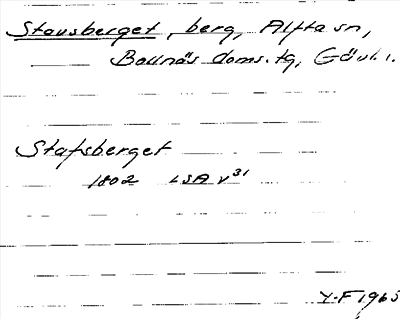 Stavsberget, berg, Alfta sn,
Bollnäs doms.tg, Gävl.l.
Stafsberget
1802 LSA V31
Y.F 1965